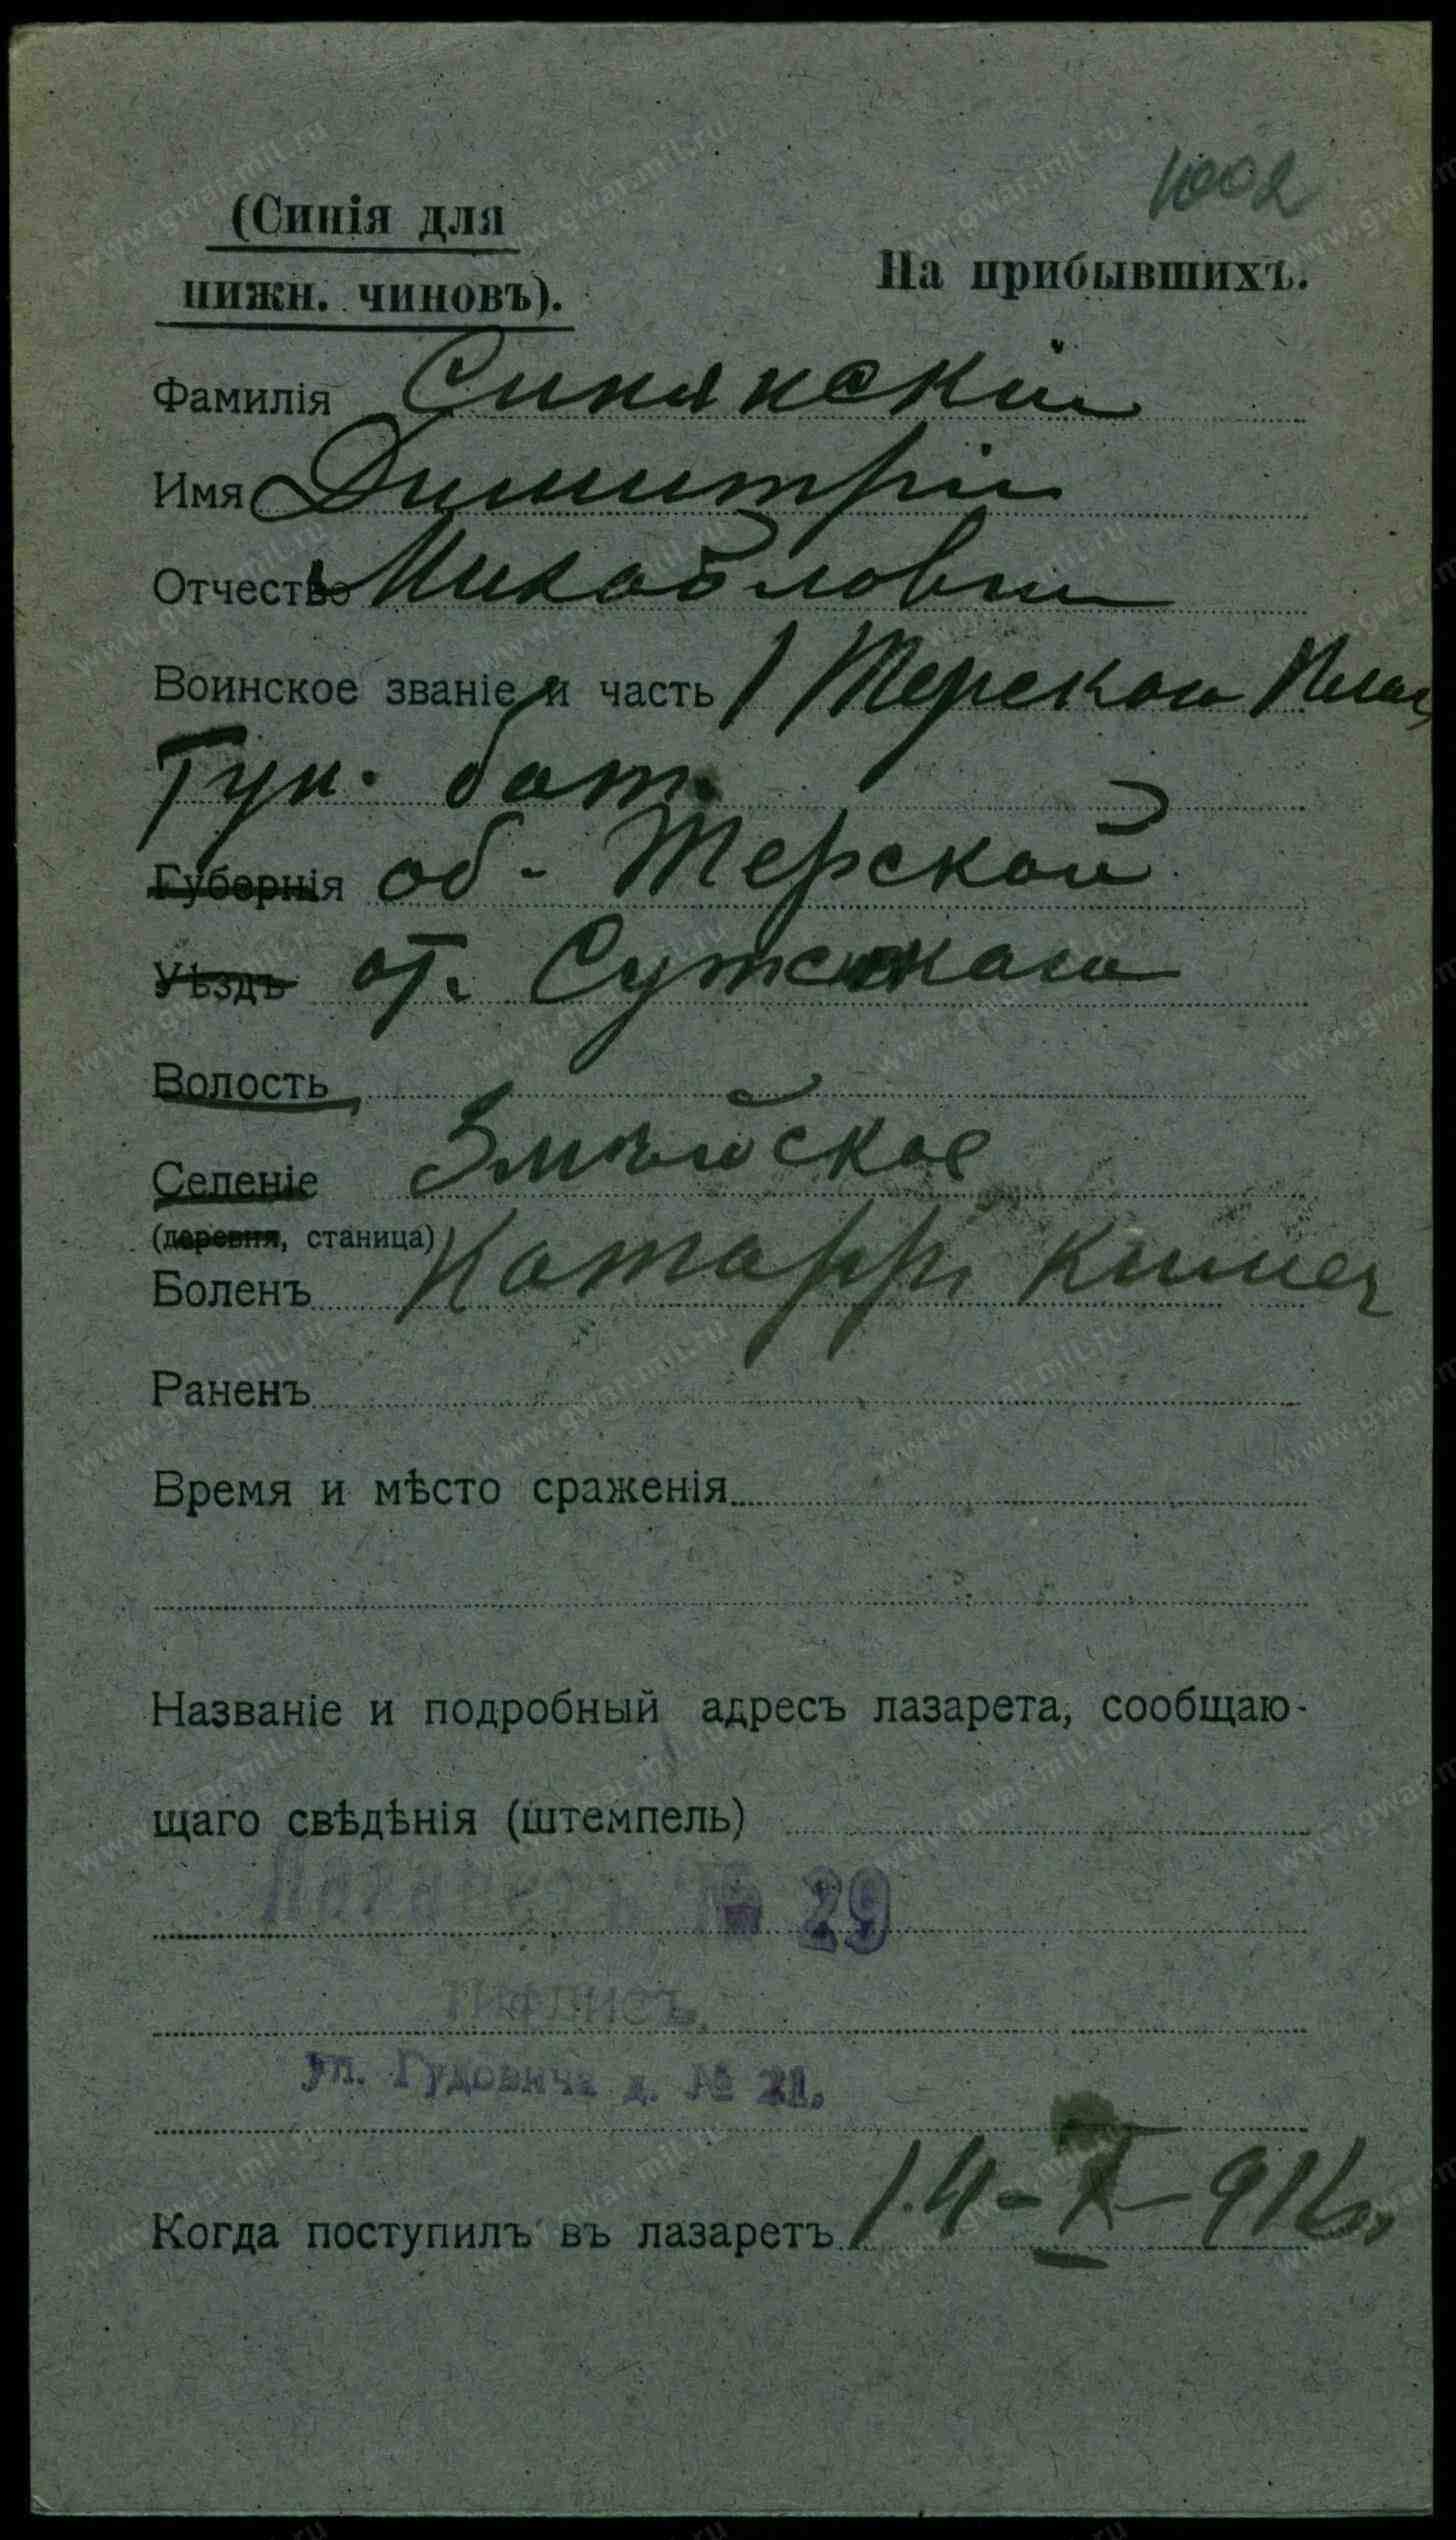 1002
(Синія для
нижн. чиновъ).
На прибывшихъ.
Фамилія Синянскій
Имя Димитрій
Отчество Михайлович
Воинское званіе и часть 1 Терской Плас
Тун. бат.
Губернія об. Терской
Уѣздъ от. Сунженскаго
Волость
Селеніе Змѣйское
(деревня, станица)
Боленъ Катарр кишеч
Раненъ
Время и мѣсто сраженія
Названіе и подробный адресъ лазарета, сообщаю-
щаго свѣдѣнія (штемпель)
Лазаретъ № 29
Тифлисъ,
ул. Гудовича д. № 21.
Когда поступилъ въ лазаретъ 14-X-916 г.